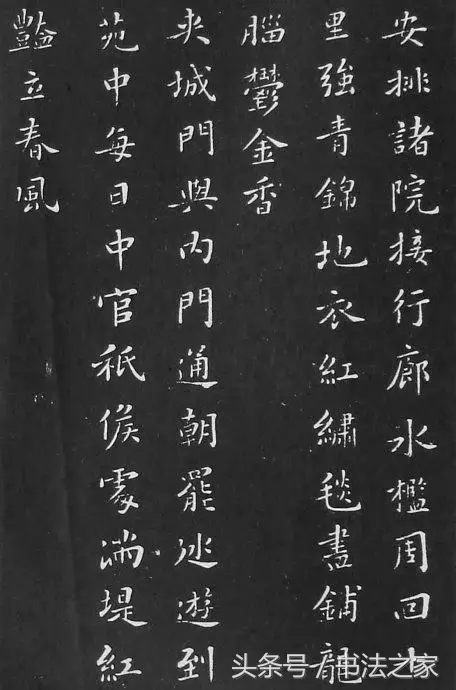 安排諸院接行廊水檻周回十
里強青錦地衣紅繡毯盡鋪龍
腦鬱金香
夾城門與內門通朝罷巡遊到
苑中每日中官祇候處滿堤紅
豔立春風
头条号/书法之家